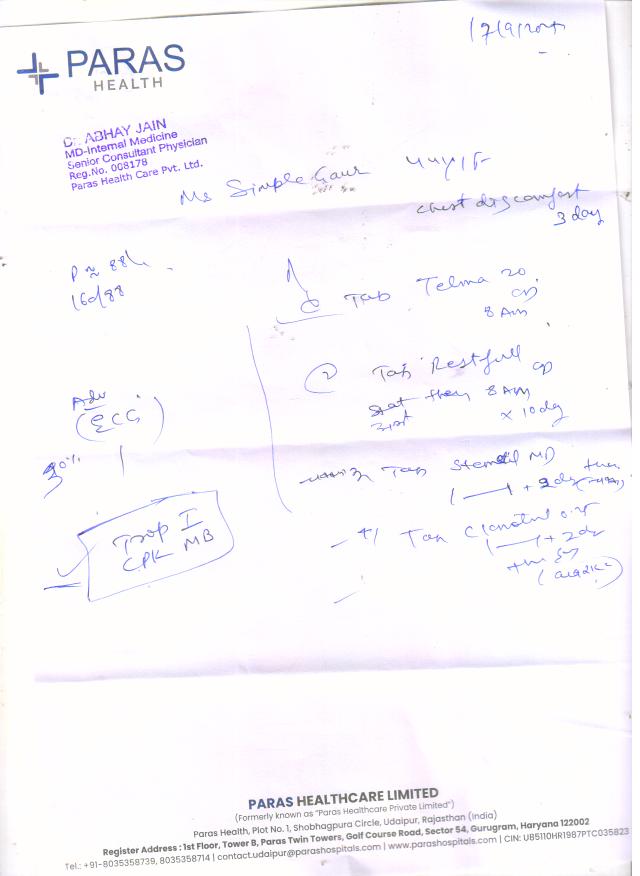 PARAS
HEALTH
Dr. ABHAY JAIN
MD-Internal Medicine
Senior Consultant Physician
Reg.No. 008178
Paras Health Care Pvt. Ltd.
Ms Simple Gaur 44y/F
chest discomfort
3 day
160/88
Tab Telma 20
8 Am
② Tab Restfull
stat then 8 Am
x 10 day
Adv
(ECG)
Tab Stemetil MD
+ 2 day then
Trop I
CPK MB
4) Tab
+ 2 day
PARAS HEALTHCARE LIMITED
(Formerly known as "Paras Healthcare Private Limited")
Paras Health, Plot No. 1, Shobhagpura Circle, Udaipur, Rajasthan (India)
Register Address : 1st Floor, Tower B, Paras Twin Towers, Golf Course Road, Sector 54, Gurugram, Haryana 122002
Tel.: +91-8035358739, 8035358714 | contact.udaipur@parashospitals.com | www.parashospitals.com | CIN: U85110HR1987PTC035823